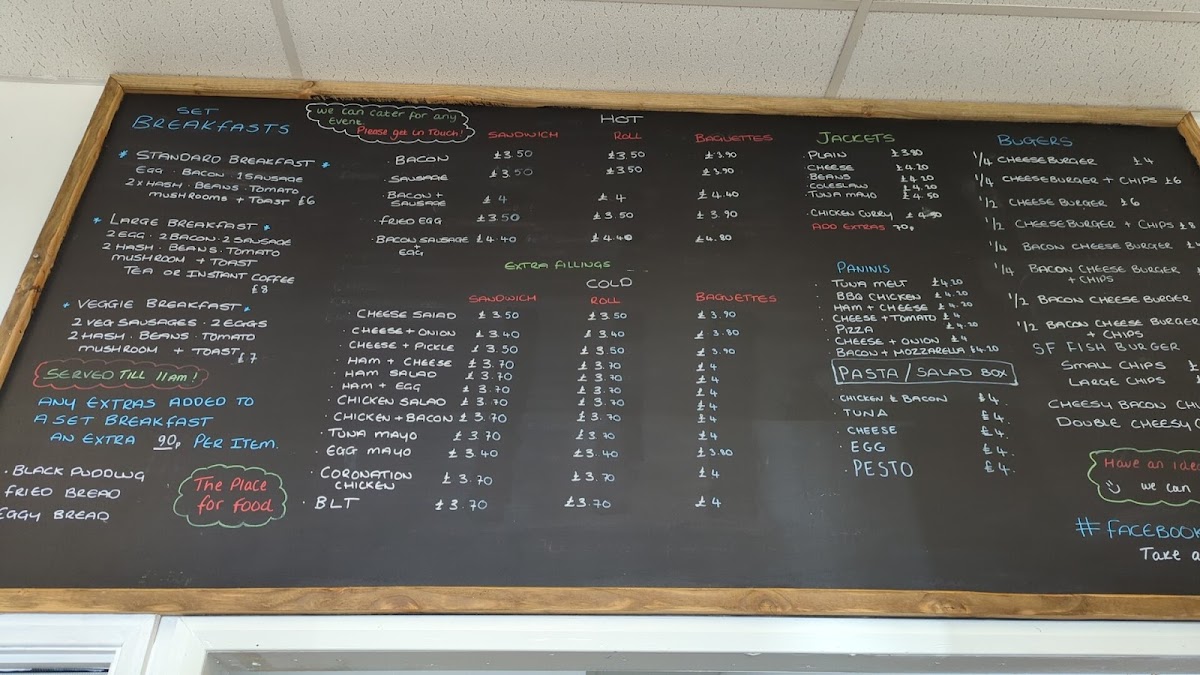 SET
BREAKFASTS
* STANDARD BREAKFAST *
EGG · BACON · 1 SAUSAGE
2 x HASH · BEANS · TOMATO
MUSHROOMS + TOAST £6
* LARGE BREAKFAST *
2 EGG · 2 BACON · 2 SAUSAGE
2 HASH · BEANS · TOMATO
MUSHROOM + TOAST
TEA OR INSTANT COFFEE
£8
* VEGGIE BREAKFAST *
2 VEG SAUSAGES · 2 EGGS
2 HASH · BEANS · TOMATO
MUSHROOM + TOAST
£7
SERVED TILL 11am!
ANY EXTRAS ADDED TO
A SET BREAKFAST
AN EXTRA 90p PER ITEM.
· BLACK PUDDING
FRIED BREAD
EGGY BREAD
The Place
for food
We can cater for any
Event
Please get in touch!
HOT
SANDWICH ROLL BAGUETTES
· BACON £3.50 £3.50 £3.90
· SAUSAGE £3.50 £3.50 £3.90
· BACON +
SAUSAGE £4 £4 £4.40
· FRIED EGG £3.50 £3.50 £3.90
· BACON SAUSAGE £4.40 £4.40 £4.80
+
EGG
EXTRA FILLINGS
COLD
SANDWICH ROLL BAGUETTES
· CHEESE SALAD £3.50 £3.50 £3.90
· CHEESE + ONION £3.40 £3.40 £3.80
· CHEESE + PICKLE £3.50 £3.50 £3.90
· HAM + CHEESE £3.70 £3.70 £4
· HAM SALAD £3.70 £3.70 £4
· HAM + EGG £3.70 £3.70 £4
· CHICKEN SALAD £3.70 £3.70 £4
· CHICKEN + BACON £3.70 £3.70 £4
· TUNA MAYO £3.70 £3.70 £4
· EGG MAYO £3.40 £3.40 £3.80
· CORONATION
CHICKEN £3.70 £3.70 £4
· BLT £3.70 £3.70 £4
JACKETS
· PLAIN £3.80
· CHEESE £4.20
· BEANS £4.20
· COLESLAW £4.20
· TUNA MAYO £4.50
· CHICKEN CURRY
ADD EXTRAS 70p
PANINIS
· TUNA MELT £4.20
· BBQ CHICKEN £4.20
· HAM + CHEESE £4.20
· CHEESE + TOMATO £4
· PIZZA £4.20
· CHEESE + ONION £4
· BACON + MOZZARELLA £4.20
PASTA / SALAD BOX
· CHICKEN & BACON £4.
· TUNA £4.
· CHEESE £4.
· EGG £4.
· PESTO £4.
BUGERS
1/4 CHEESEBURGER £4
1/4 CHEESEBURGER + CHIPS £6
1/2 CHEESE BURGER £6
1/2 CHEESEBURGER + CHIPS
1/4 BACON CHEESE BURGER
1/4 BACON CHEESE BURGER
+ CHIPS
1/2 BACON CHEESE BURGER
1/2 BACON CHEESE BURGER
+ CHIPS
SF FISH BURGER
SMALL CHIPS
LARGE CHIPS
CHEESY BACON
DOUBLE CHEESY
Have an idea
we can
# FACEBOOK
Take a